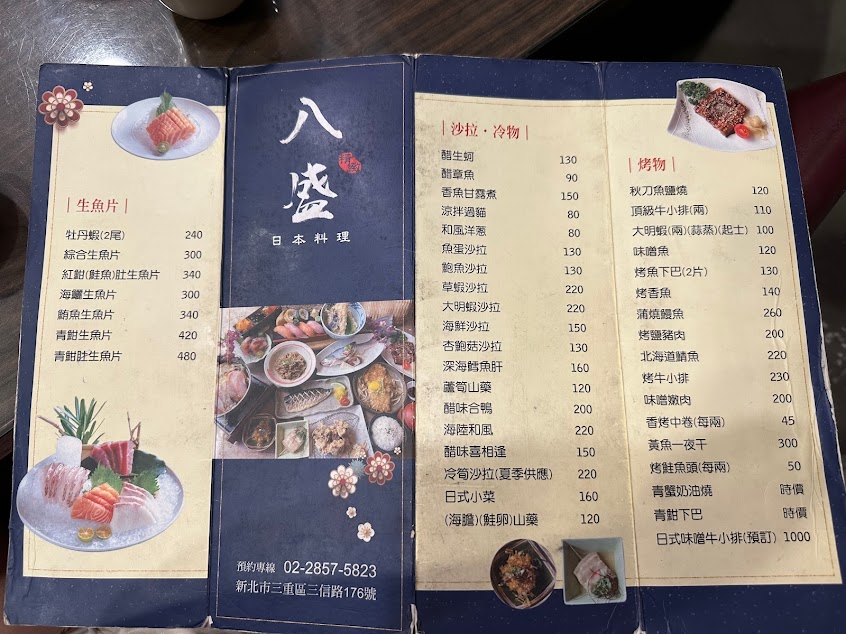 生魚片
牡丹蝦(2尾) 240
綜合生魚片 300
紅魽(鮭魚)肚生魚片 340
海鱺生魚片 300
鮪魚生魚片 340
青魽生魚片 420
青魽肚生魚片 480
八
盛
日本料理
預約專線 02-2857-5823
新北市三重區三信路176號
沙拉·冷物
醋生蚵 130
醋章魚 90
香魚甘露煮 150
涼拌過貓 80
和風洋蔥 80
魚蛋沙拉 130
鮑魚沙拉 130
草蝦沙拉 220
大明蝦沙拉 220
海鮮沙拉 150
杏鮑菇沙拉 130
深海鱈魚肝 160
蘆筍山藥 120
醋味合鴨 200
海陸和風 220
醋味喜相逢 150
冷筍沙拉(夏季供應) 220
日式小菜 160
(海膽)(鮭卵)山藥 120
烤物
秋刀魚鹽燒 120
頂級牛小排(兩) 110
大明蝦(兩)(蒜蒸)(起士) 100
味噌魚 120
烤魚下巴(2片) 130
烤香魚 140
蒲燒鰻魚 260
烤鹽豬肉 200
北海道鯖魚 220
烤牛小排 230
味噌嫩肉 200
香烤中卷(每兩) 45
黃魚一夜干 300
烤鮭魚頭(每兩) 50
青蟹奶油燒 時價
青魽下巴 時價
日式味噌牛小排(預訂) 1000